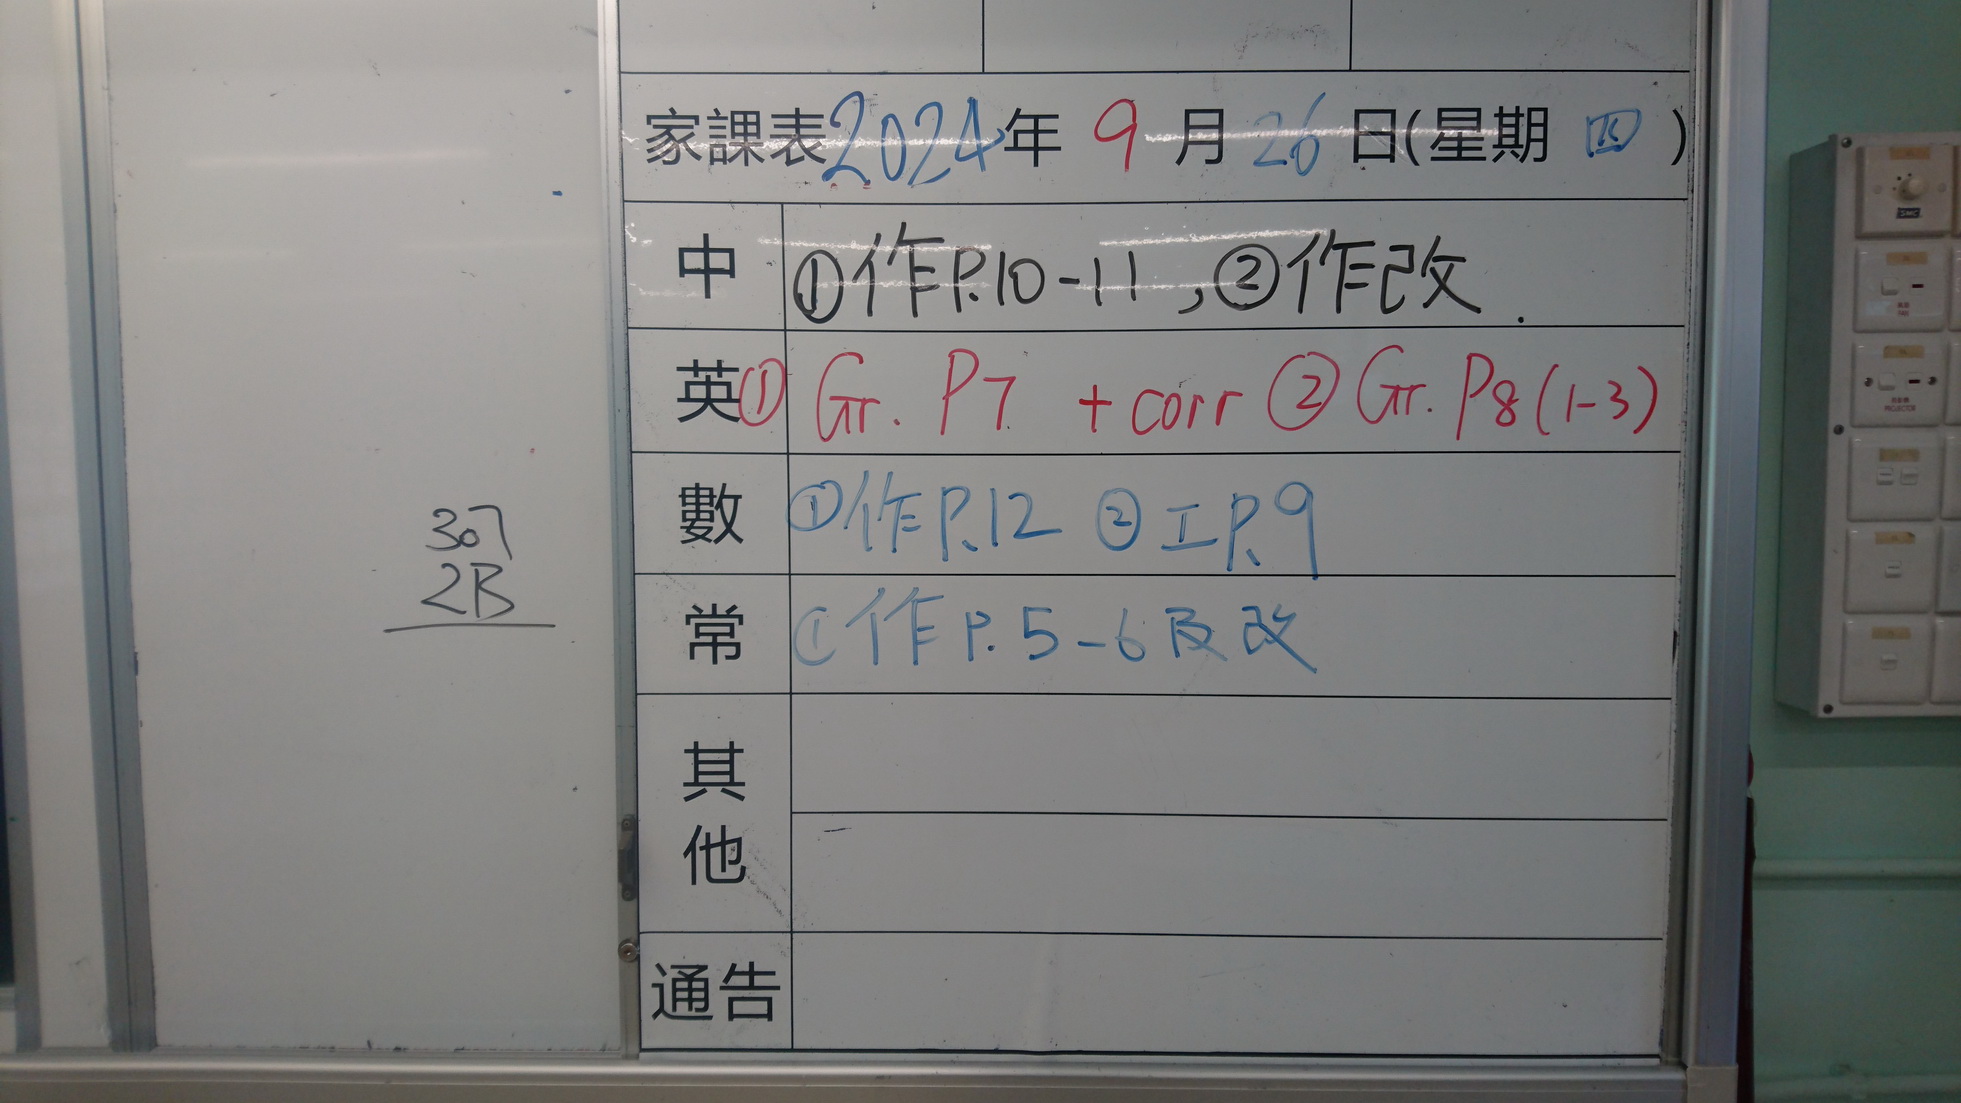 家課表2024年 9月26日(星期四)
中 ①作P.10-11,②作改.
英 ① Gr. P7 + corr ② Gr. P8(1-3)
數 ①作P.12 ②工P.9
常 ①作P.5-6及改
其他
通告
307
2B